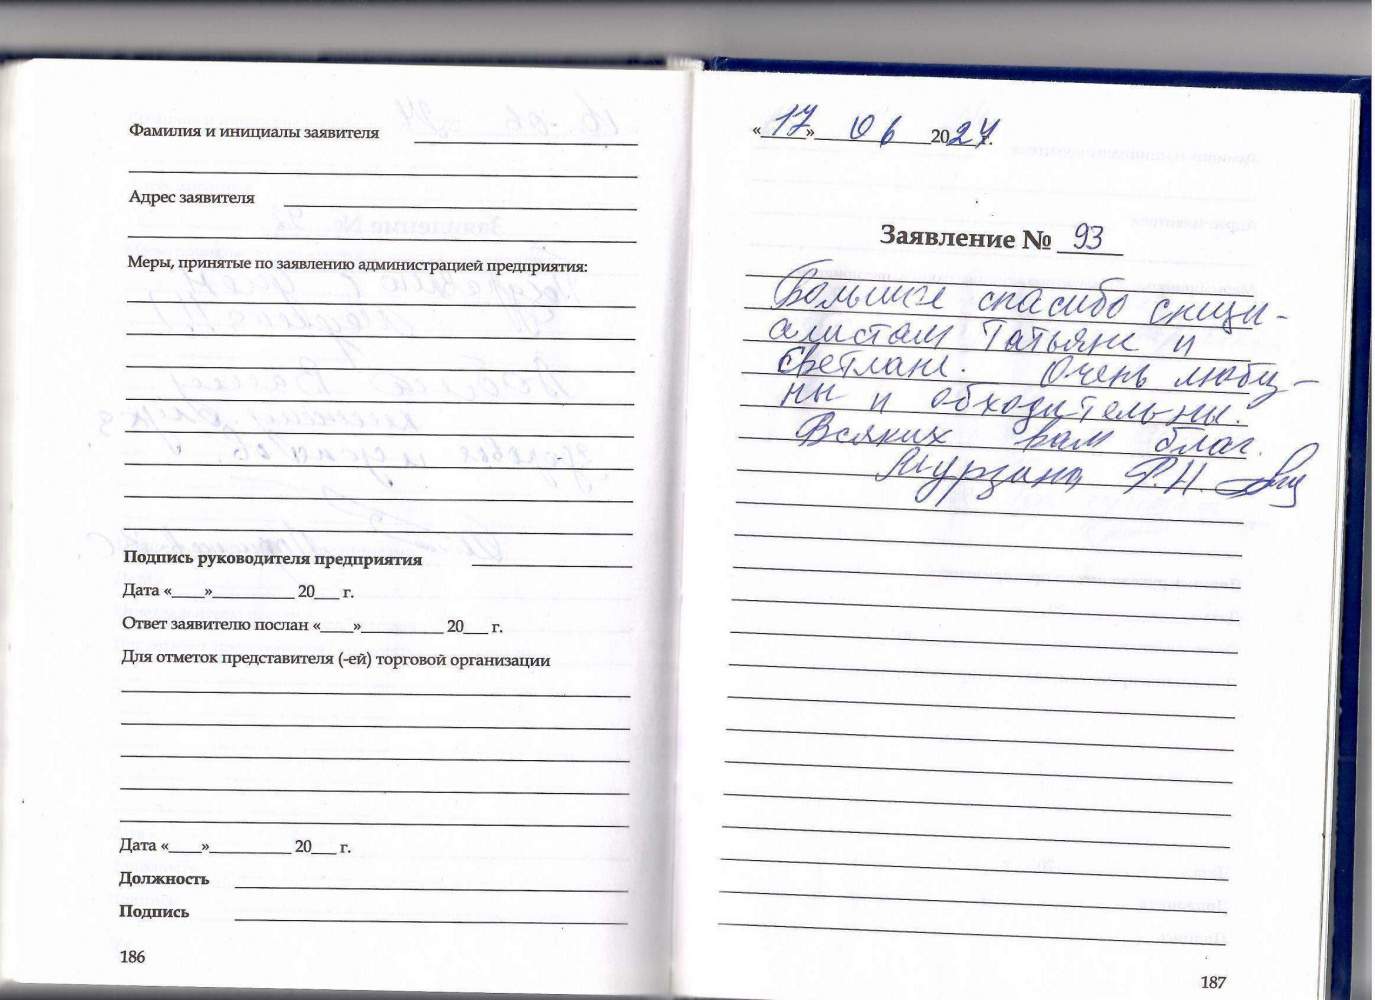 Фамилия и инициалы заявителя
Адрес заявителя
Меры, принятые по заявлению администрацией предприятия:
Подпись руководителя предприятия
Дата «____»__________ 20___ г.
Ответ заявителю послан «____»__________ 20___ г.
Для отметок представителя (-ей) торговой организации
Дата «____»__________ 20___ г.
Должность
Подпись
186
«17» 06 2024 г.
Заявление № 93
Большое спасибо специ-
алистам Татьяне и
Светлане. Очень любез-
ны и обходительны.
Всяких вам благ.
Мурзина Р.Н.
187